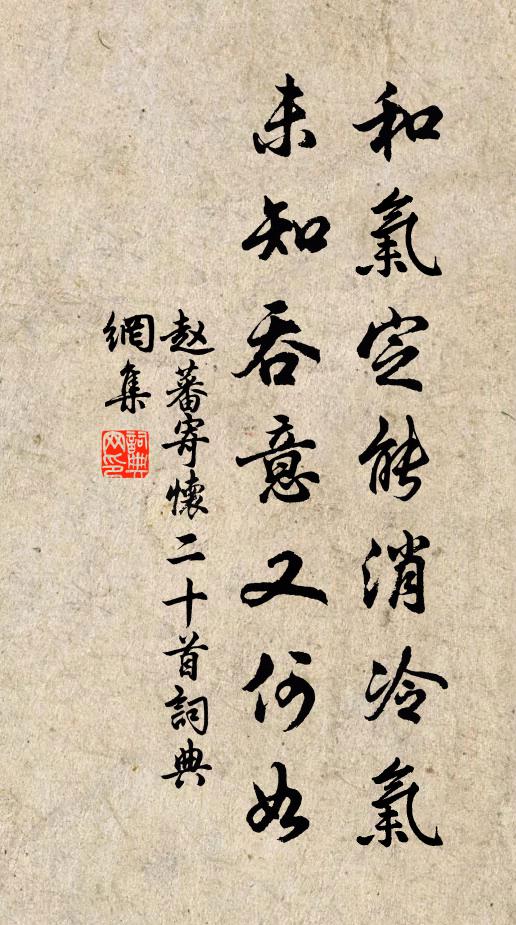 和氣定能消冷氣
未知吞意又何如
赵蕃寄懷二十首詞典
網集
詞典
网印